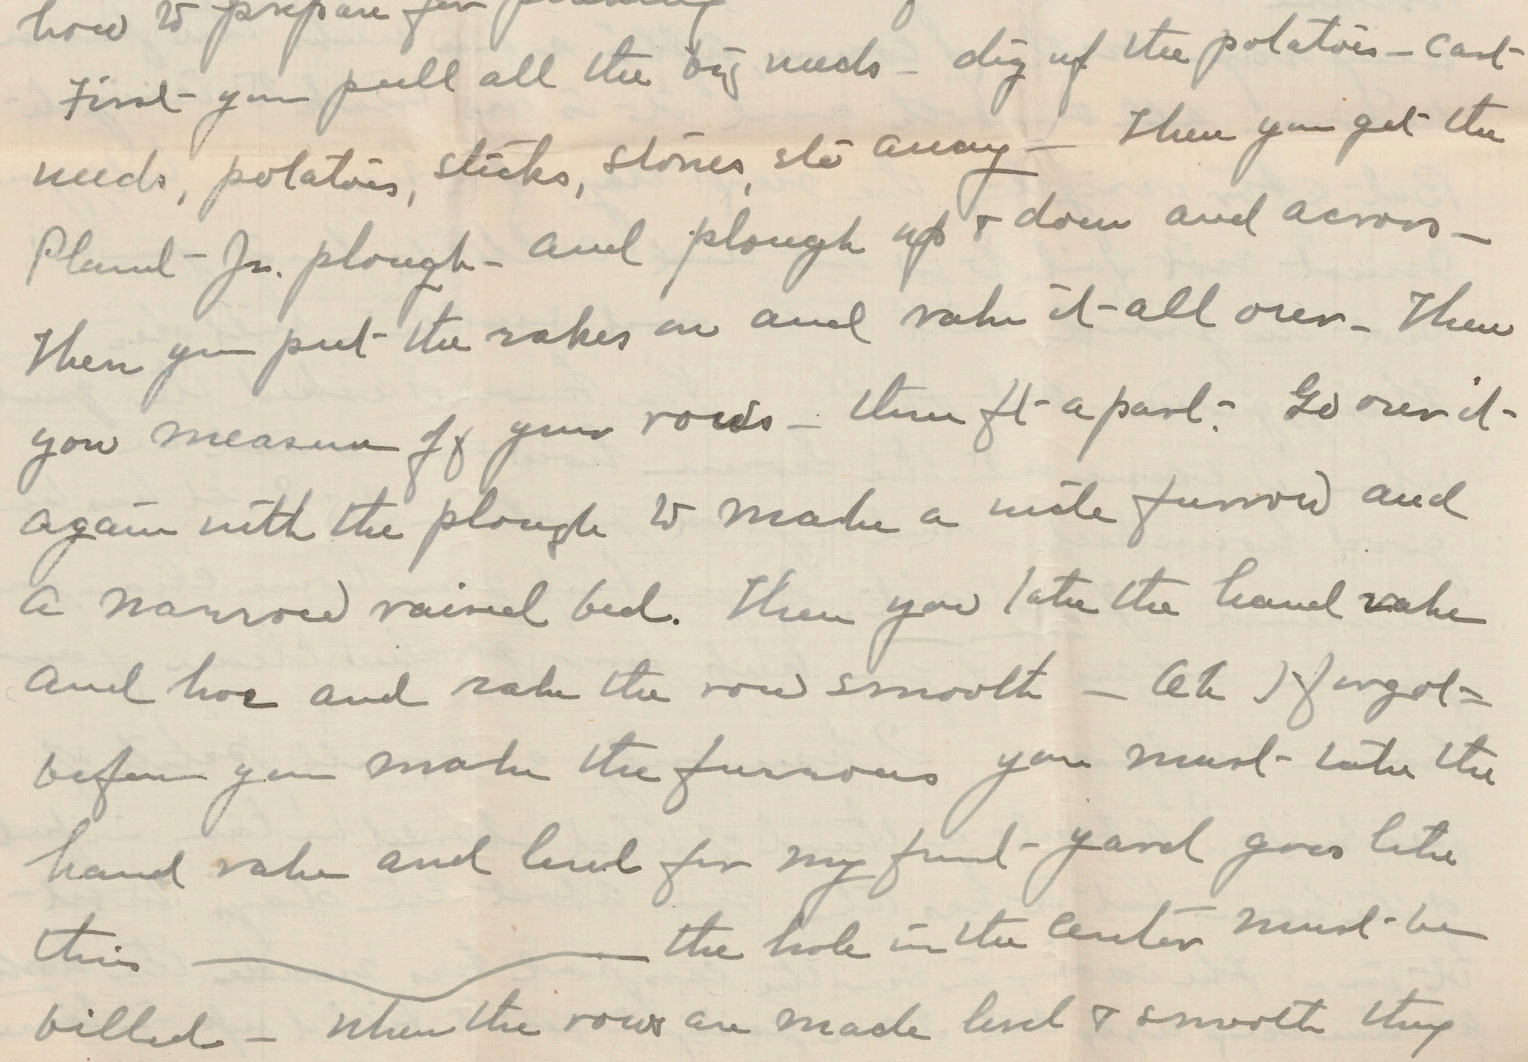 how to prepare for planting
First you pull all the big weeds - dig up the potatoes - cast
weeds, potatoes, sticks, stones, etc away - Then you get the
Planet Jr. plough - and plough up & down and across -
Then you put the rakes on and rake it all over - Then
you measure off your rows - three ft apart - Go over it
again with the plough to make a wide furrow and
a narrow raised bed. Then you take the hand rake
and hoe and rake the row smooth - Oh I forgot -
before you make the furrows you must take the
hand rake and level for my front yard goes like
this the hole in the center must be
billed - When the rows are made level & smooth they